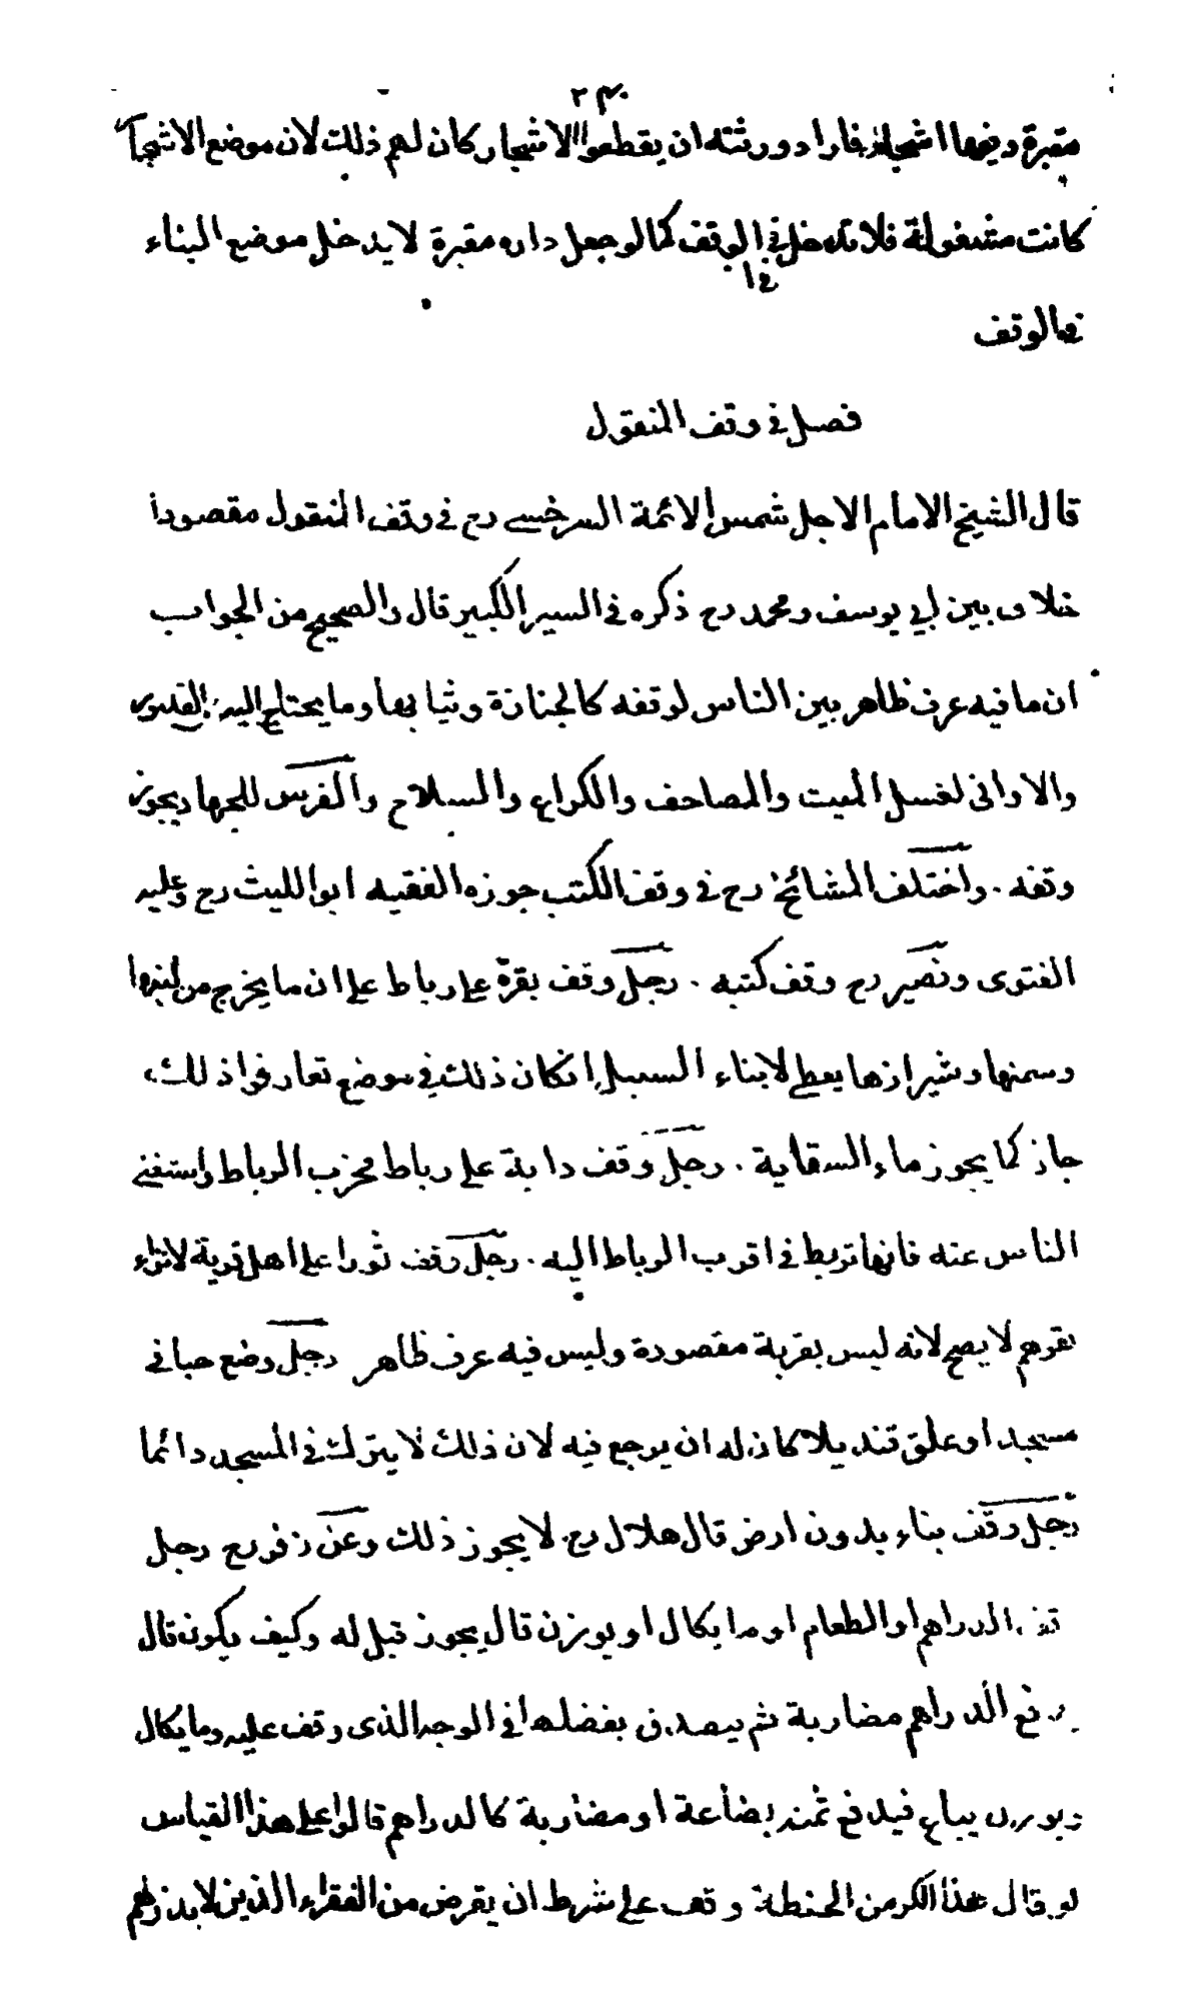 ٢٣٠
مقبرة وفيها اشجار فاراد ورثته ان يقطعوا الاشجار كان لهم ذلك لان موضع الاشجار
كانت مشغولة فلا تدخل في الوقف كما لو جعل داره مقبرة لا يدخل موضع البناء
في الوقف
فصل في وقف المنقول
قال الشيخ الامام الاجل شمس الائمة السرخسي رح في وقف المنقول مقصودا
خلاف بين ابي يوسف ومحمد رح ذكره في السير الكبير قال والصحيح من الجواب
ان ما فيه عرف ظاهر بين الناس لوقفه كالجنازة وثيابها وما يحتاج اليه القدور
والاواني لغسل الميت والمصاحف والكراع والسلاح والفرس للجهاد يجوز
وقفه . واختلف المشائخ رح في وقف الكتب جوزه الفقيه ابو الليث رح وعليه
الفتوى ونصير رح وقف كتبه . رجل وقف بقرة على رباط على ان ما يخرج من لبنها
وسمنها وشيرازها يعطى لابناء السبيل ان كان ذلك في موضع تعارفوا ذلك
جاز كما يجوز ماء السقاية . رجل وقف دابة على رباط فخرب الرباط واستغنى
الناس عنه فانها تربط في اقرب الرباط اليه . رجل وقف ثورا على اهل قرية لانزاء
بقرهم لا يصح لانه ليس بقربة مقصودة وليس فيه عرف ظاهر رجل وضع حبا في
مسجد او علق قنديلا كان له ان يرجع فيه لان ذلك لا يترك في المسجد دائما
رجل وقف بناء بدون ارض قال هلال رح لا يجوز ذلك وعن زفر رح رجل
وقف الدراهم او الطعام او ما يكال او يوزن قال يجوز قيل له وكيف يكون قال
يدفع الدراهم مضاربة ثم يتصدق بفضلها في الوجه الذى وقف عليه وما يكال
ويوزن يباع فيدفع ثمنه بضاعة او مضاربة كالدراهم قالوا على هذا القياس
لو قال هذا الكر من الحنطة وقف على شرط ان يقرض من الفقراء الذين لا بذر لهم